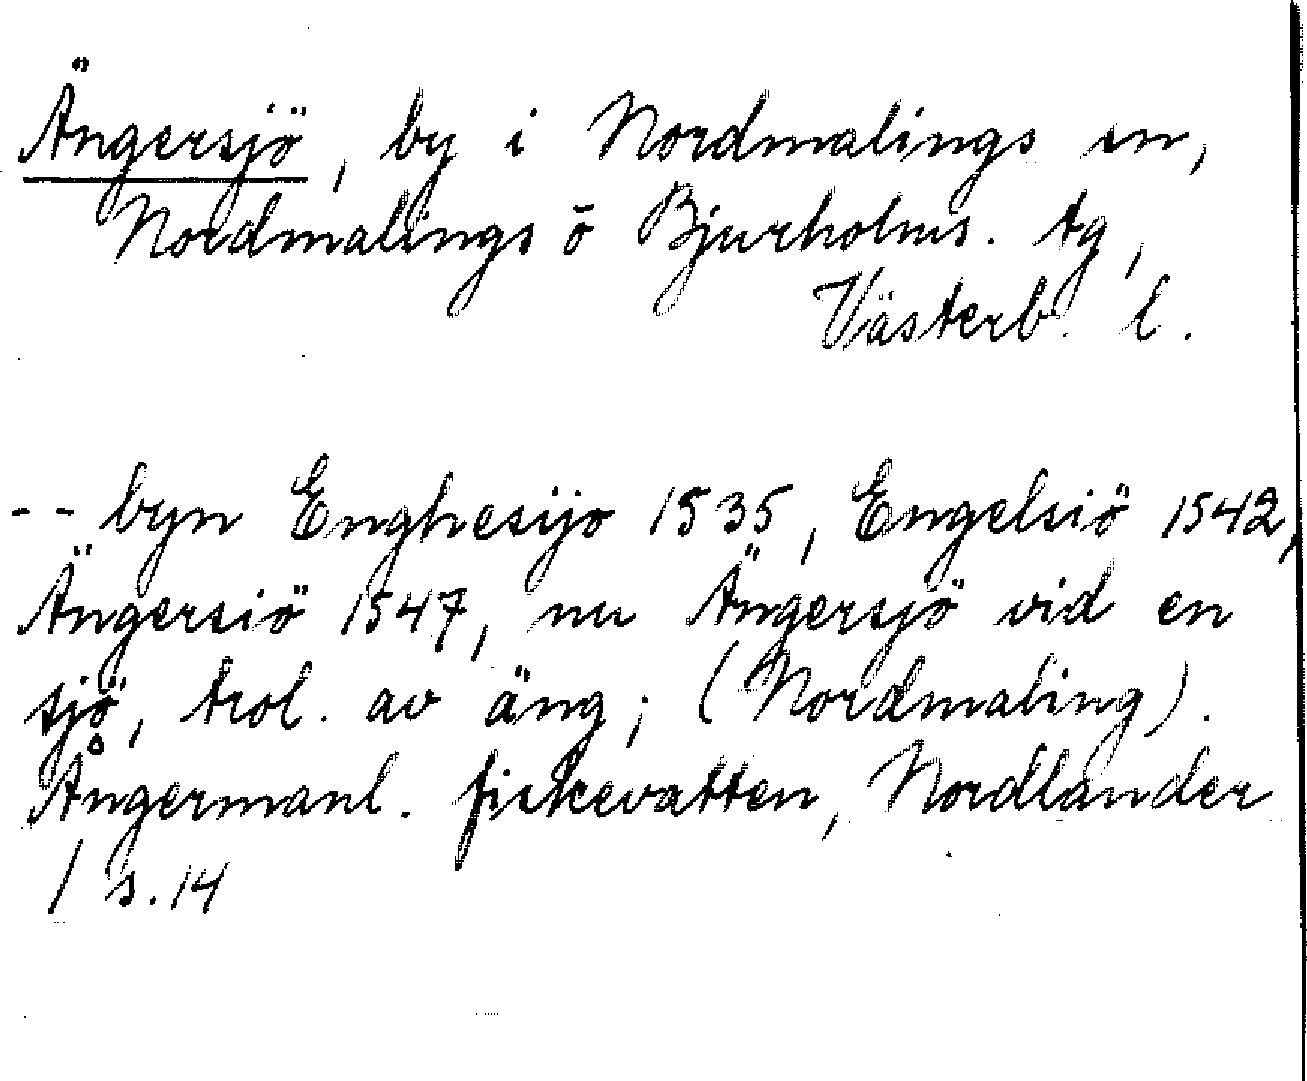 Ängersjö, by i Nordmalings sn,
Nordmalings o Bjurholms. tg,
Västerb. l.
-- byn Enghesijo 1535, Engelsiö 1542,
Ängersiö 1547, nu Ängersjö vid en
sjö, trol. av äng; (Nordmaling).
Ångermanl. fiskevatten, Nordlander
/ s. 14